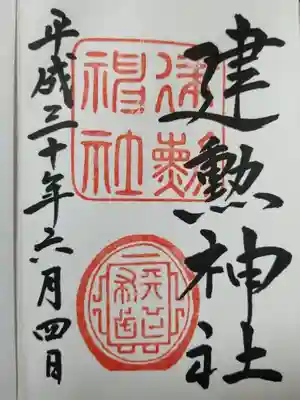 建勲神社
建勲神社
平成三十年六月四日